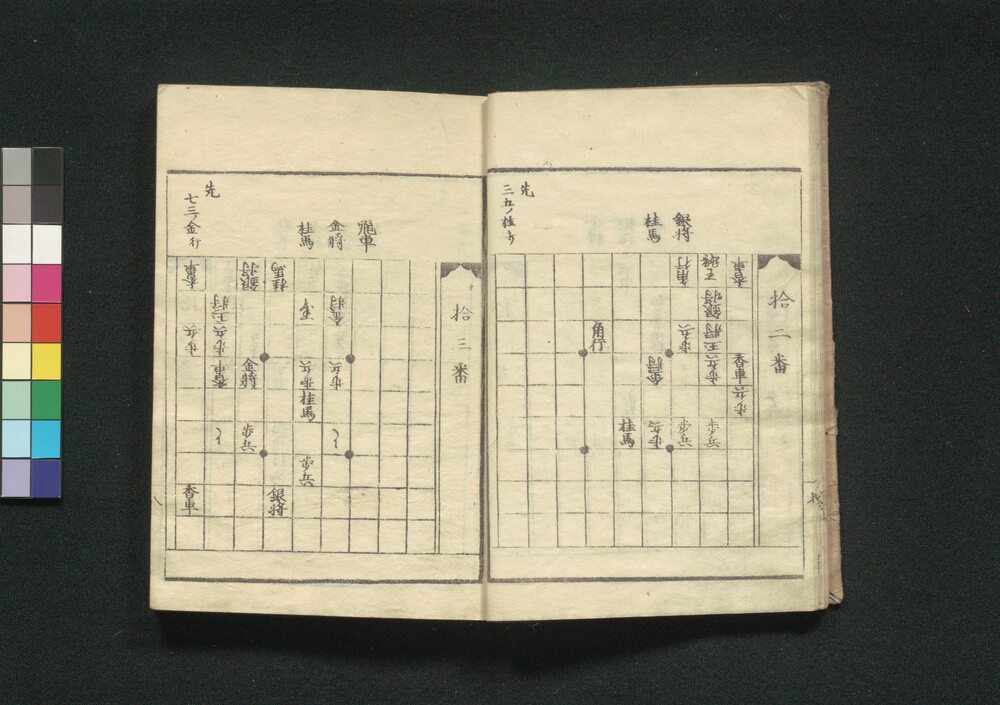 拾二番
銀将
桂馬
先
三五ノ桂打
香車
香車
歩兵
龍王
銀将
王将
歩兵
歩兵
角行
歩兵
歩兵
金将
歩兵
桂馬
角行
拾三番
飛車
金将
桂馬
先
七三ノ金行
金将
歩兵
歩兵
桂馬
歩兵
桂馬
銀将
銀将
金将
歩兵
王将
歩兵
香車
香車
歩兵
香車